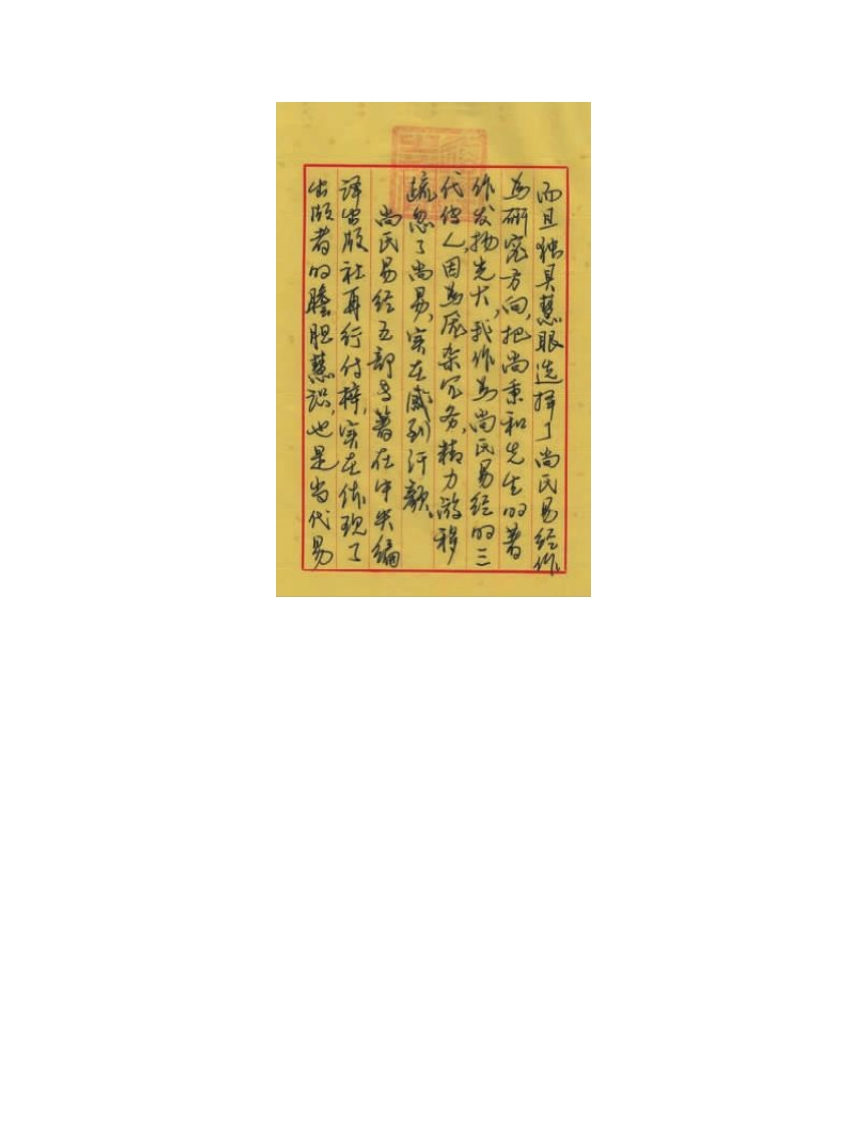 而且独具慧眼选择了尚氏易经作
为研究方向,把尚秉和先生的著
作发扬光大,我作为尚氏易经的三
代传人,因为庞杂冗务,精力游移
疏忽了尚易,实在感到汗颜。
尚氏易经五部专著在中央编
译出版社再行付梓,实在体现了
出版者的胆慧识,也是当代易